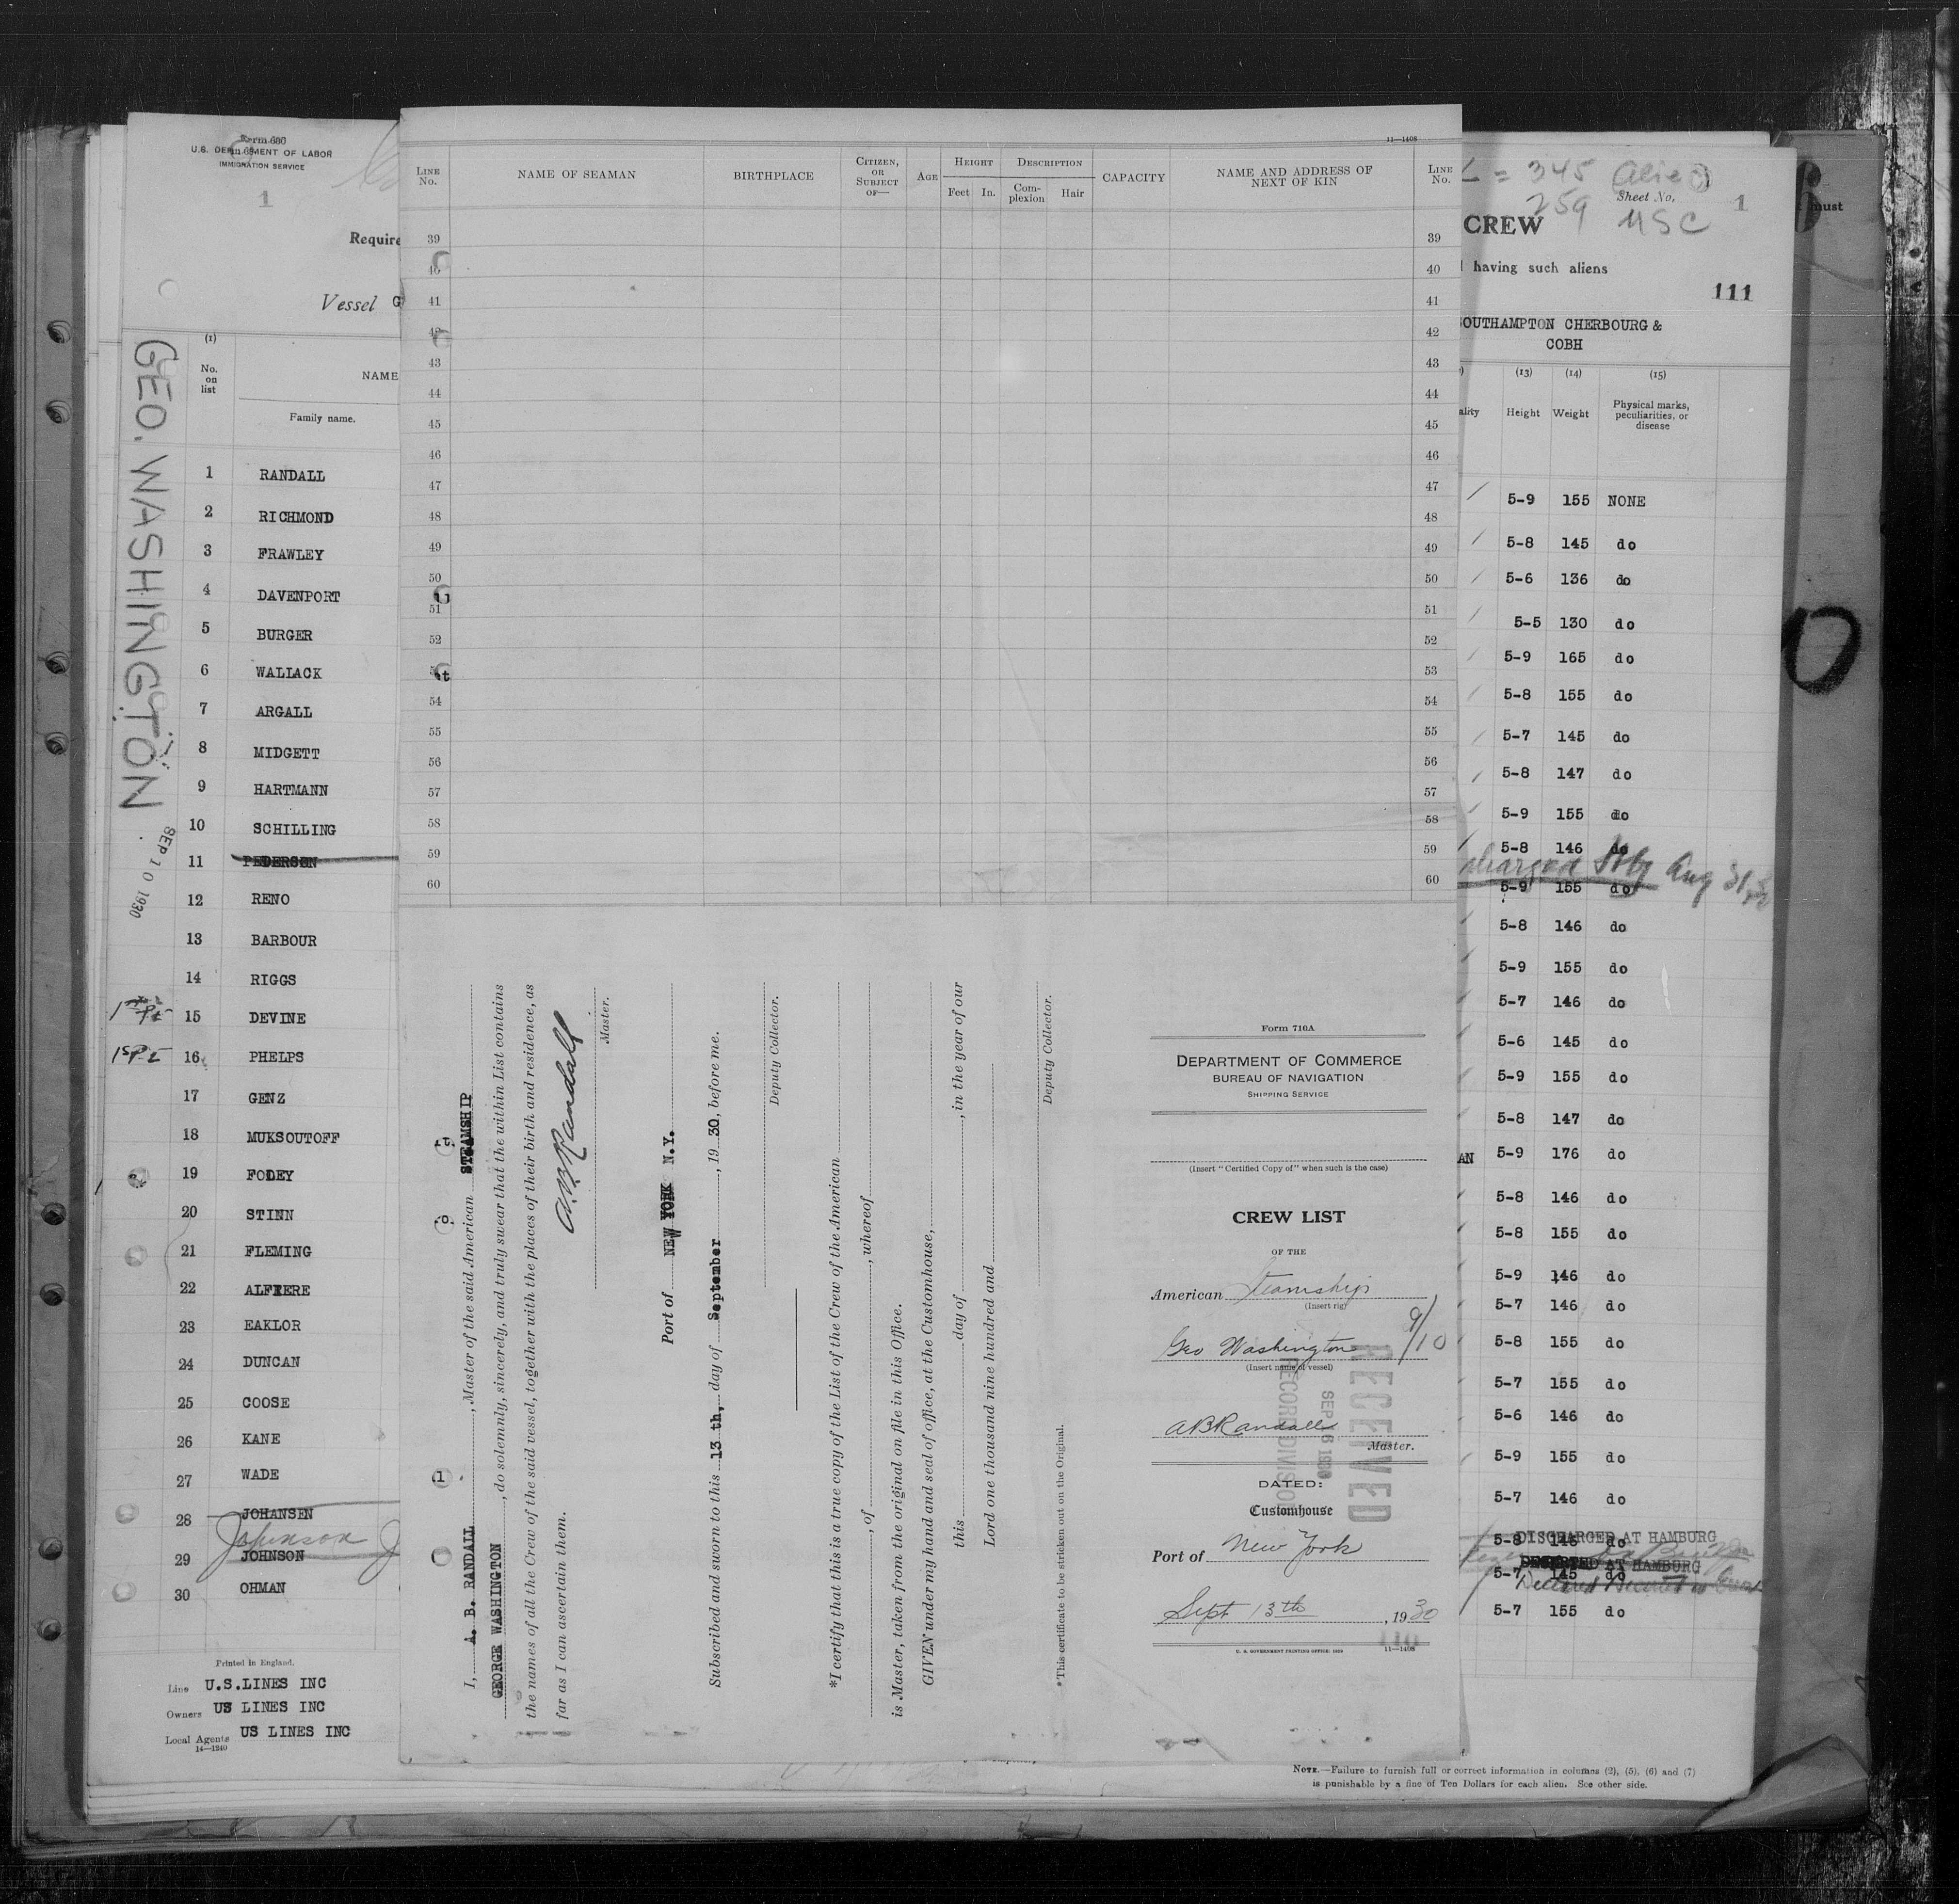 Form 680
U.S. DEPARTMENT OF LABOR
IMMIGRATION SERVICE
1
Require
Vessel G
(1)
No.
on
list
NAME
Family name.
GEO. WASHINGTON.
SEP 10 1930
1 RANDALL
2 RICHMOND
3 FRAWLEY
4 DAVENPORT
5 BURGER
6 WALLACK
7 ARGALL
8 MIDGETT
9 HARTMANN
10 SCHILLING
11 PEDERSON
12 RENO
13 BARBOUR
14 RIGGS
15 DEVINE
16 PHELPS
17 GENZ
18 MUKSOUTOFF
19 FOLEY
20 STINN
21 FLEMING
22 ALFIERE
23 EAKLOR
24 DUNCAN
25 COOSE
26 KANE
27 WADE
28 JOHANSEN
Johnson
29 JOHNSON
30 OHMAN
Printed in England.
Line U.S.LINES INC
Owners US LINES INC
Local Agents US LINES INC
14—1240
11—1408
LINE No.
NAME OF SEAMAN
BIRTHPLACE
CITIZEN, OR SUBJECT OF—
AGE
HEIGHT
Feet In.
DESCRIPTION
Complexion Hair
CAPACITY
NAME AND ADDRESS OF NEXT OF KIN
LINE No.
39 39
40 40
41 41
42 42
43 43
44 44
45 45
46 46
47 47
48 48
49 49
50 50
51 51
52 52
53 53
54 54
55 55
56 56
57 57
58 58
59 59
60 60
I, A. B. RANDALL, Master of the said American STEAMSHIP
GEORGE WASHINGTON, do solemnly, sincerely, and truly swear that the within List contains
the names of all the Crew of the said vessel, together with the places of their birth and residence, as
far as I can ascertain them.
A.B. Randall
Master.
Port of NEW YORK N.Y.
Subscribed and sworn to this 13 th, day of September, 1930, before me.
Deputy Collector.
*I certify that this is a true copy of the List of the Crew of the American
, of , whereof
is Master, taken from the original on file in this Office.
GIVEN under my hand and seal of office, at the Customhouse,
this day of , in the year of our
Lord one thousand nine hundred and
Deputy Collector.
*This certificate to be stricken out on the Original.
Form 710A
DEPARTMENT OF COMMERCE
BUREAU OF NAVIGATION
SHIPPING SERVICE
(Insert "Certified Copy of" when such is the case)
CREW LIST
OF THE
American Steamship
(Insert rig)
Geo Washington 9/10
(Insert name of vessel)
A B Randall
Master.
RECEIVED
SEP 16 1930
RECORD DIVISION
DATED:
Customhouse
Port of New York
Sept 13th, 1930
110
U. S. GOVERNMENT PRINTING OFFICE: 11—1408
= 345 Alie
259 USC
Sheet No. 1
must
CREW
having such aliens
111
SOUTHAMPTON CHERBOURG &
COBH
(13) (14) (15)
ality
Height
Weight
Physical marks, peculiarities, or disease
5-9 155 NONE
5-8 145 do
5-6 136 do
5-5 130 do
5-9 165 do
5-8 155 do
5-7 145 do
5-8 147 do
5-9 155 do
5-8 146 do
charged Aug 31
5-9 155 do
5-8 146 do
5-9 155 do
5-7 146 do
5-6 145 do
5-9 155 do
5-8 147 do
AN 5-9 176 do
5-8 146 do
5-8 155 do
5-9 146 do
5-7 146 do
5-8 155 do
5-7 155 do
5-6 146 do
5-9 155 do
5-7 146 do
DISCHARGED AT HAMBURG
5-8 146 do
AT HAMBURG
5-7 145 do
5-7 155 do
NOTE.—Failure to furnish full or correct information in columns (2), (5), (6) and (7)
is punishable by a fine of Ten Dollars for each alien. See other side.